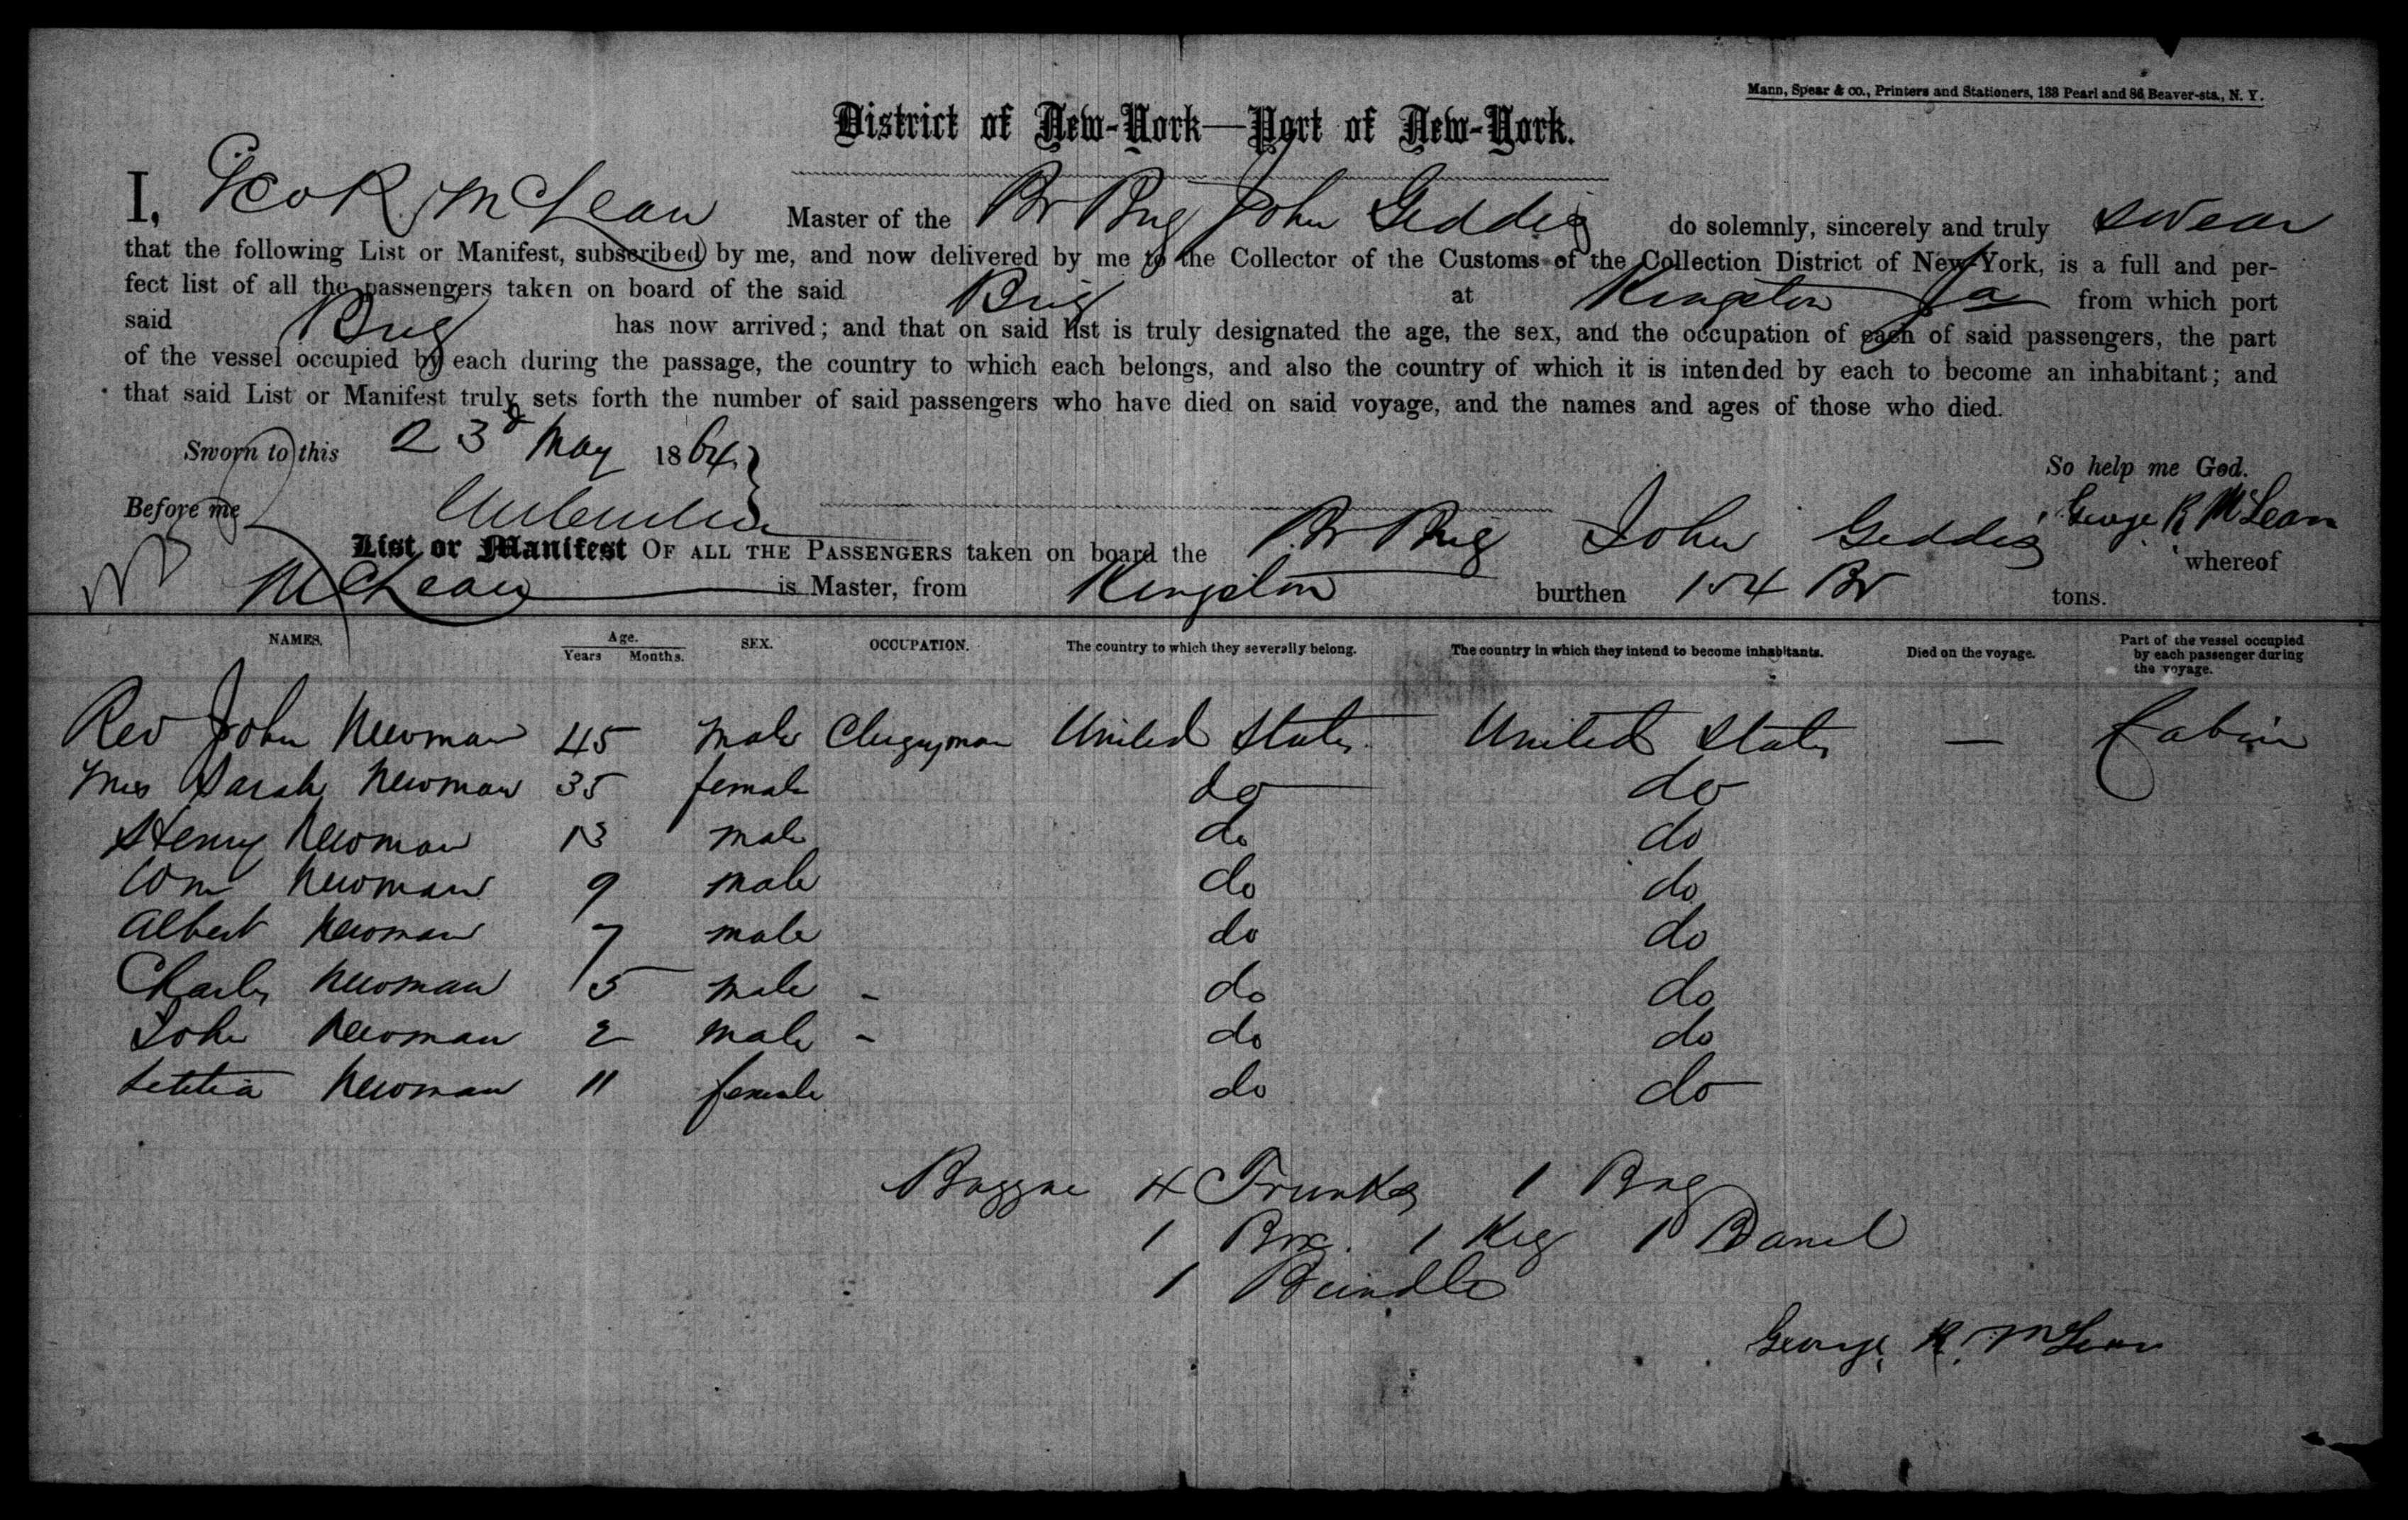 Mann, Spear & co., Printers and Stationers, 133 Pearl and 86 Beaver-sts., N. Y.
District of New-York—Port of New-York.
I, Geo R. McLean Master of the Br Brig John Geddis do solemnly, sincerely and truly swear
that the following List or Manifest, subscribed by me, and now delivered by me to the Collector of the Customs of the Collection District of New-York, is a full and per-
fect list of all the passengers taken on board of the said Brig at Kingston Ja from which port
said Brig has now arrived; and that on said list is truly designated the age, the sex, and the occupation of each of said passengers, the part
of the vessel occupied by each during the passage, the country to which each belongs, and also the country of which it is intended by each to become an inhabitant; and
that said List or Manifest truly sets forth the number of said passengers who have died on said voyage, and the names and ages of those who died.
Sworn to this 23d May 1864. So help me God.
Before me George R McLean
List or Manifest OF ALL THE PASSENGERS taken on board the Br Brig John Geddis whereof
McLean is Master, from Kingston burthen 154 Br tons.
NAMES. Age. Years Months. SEX. OCCUPATION. The country to which they severally belong. The country in which they intend to become inhabitants. Died on the voyage. Part of the vessel occupied by each passenger during the voyage.
Rev John Newman 45 male Clergyman United States United States — Cabin
Mrs Sarah Newman 35 female do do
Henry Newman 13 male do do
Wm Newman 9 male do do
Albert Newman 7 male do do
Charles Newman 5 male - do do
John Newman 2 male - do do
Letitia Newman 11 female do do
Baggae 4 Trunks 1 Bag
1 Box. 1 Keg 1 Barrel
1 Bundle
George R. McLean